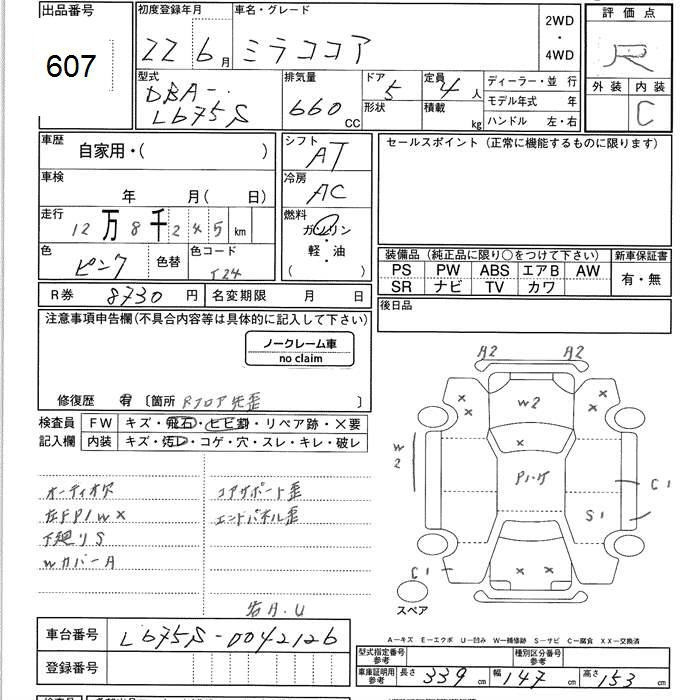 出品番号 初度登録年月 車名・グレード 2WD ・ 4WD 評価点
607 22 6月 ミラココア R
型式 排気量 ドア 定員 ディーラー・並行 外装 内装
DBA- 660 CC 5 4人 モデル年式 年 C
L675S 形状 積載 kg ハンドル 左・右
車歴 自家用・( ) シフト AT セールスポイント (正常に機能するものに限ります)
車検 年 月( 日) 冷房 AC
走行 12万8千245km 燃料 ガソリン・軽・油 ( )
色 ピンク 色替 色コード T24
装備品 (純正品に限り○をつけて下さい) 新車保証書
PS PW ABS エアB AW 有・無
SR ナビ TV カワ
R券 8730円 名変期限 月 日 後日品
注意事項申告欄(不具合内容等は具体的に記入して下さい)
ノークレーム車
no claim
修復歴 有 〔箇所 Rフロア先歪 〕
検査員 FW キズ・飛石・ヒビ割・リペア跡・×要
記入欄 内装 キズ・汚レ・コゲ・穴・スレ・キレ・破レ
A2 A2
× × W2 × ×
W2 ×
P1・ケ
C1
S1
C1 × ×
スペア
オーディオ欠 コアサポート歪
左FP1W× エンドパネル歪
下廻りS
WカバーA
岩A.U
A−キズ E−エクボ U−凹み W−補修跡 S−サビ C−腐食 XX−交換済
車台番号 L675S-0042126
登録番号
型式指定番号 参考 種別区分番号 参考
車庫証明用 参考 長さ 339cm 幅 147cm 高さ 153cm